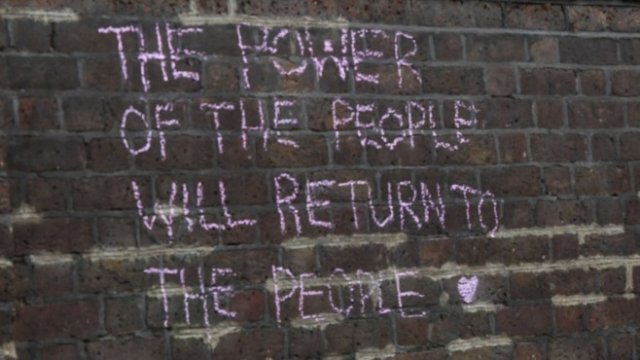 THE POWER
OF THE PEOPLE
WILL RETURN TO
THE PEOPLE